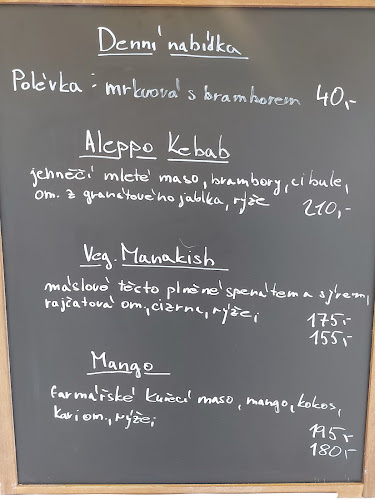 Denní nabídka
Polévka: mrkvová s bramborem 40,-
Aleppo Kebab
jehněčí mleté maso, brambory, cibule,
om. z granátového jablka, rýže 210,-
Veg. Manakish
máslové těsto plněné špenátem a sýrem,
rajčatová om, cizrna, rýže; 175,-
155,-
Mango
farmářské kuřecí maso, mango, kokos,
kari om., rýže; 195,-
180,-